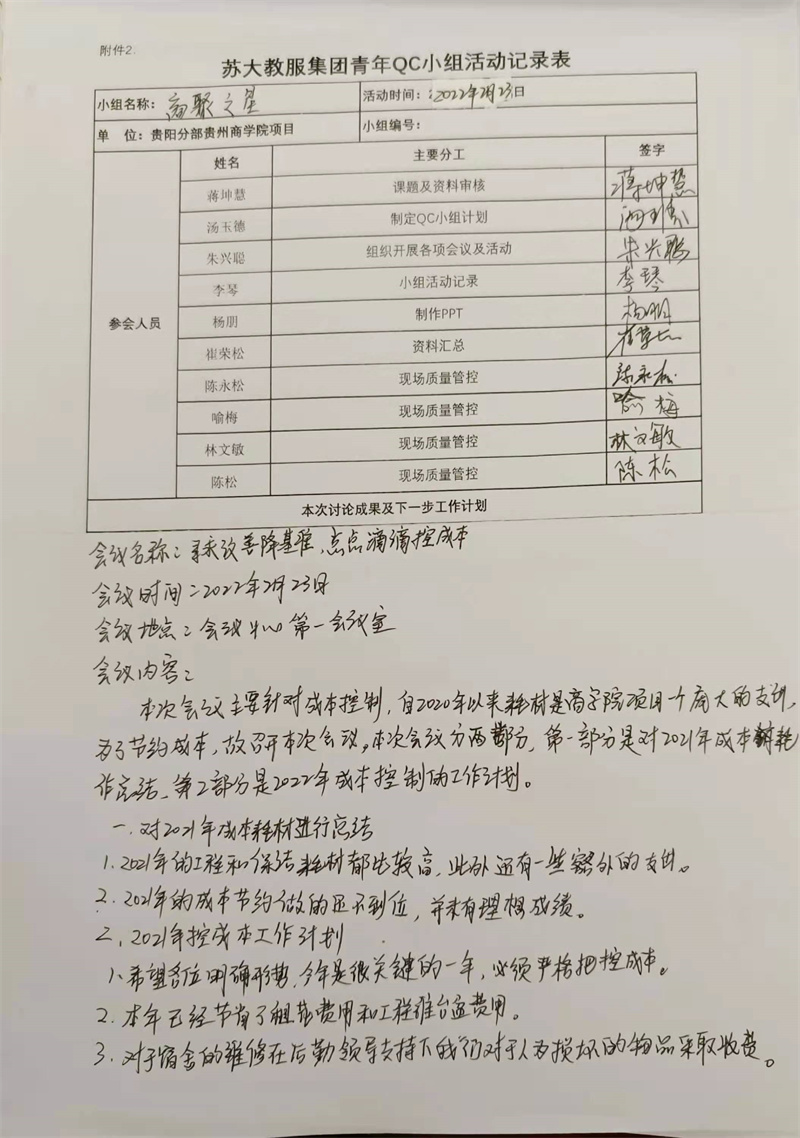 附件2.
苏大教服集团青年QC小组活动记录表
小组名称: 商聚之星 活动时间: :2022年2月23日
单 位: 贵阳分部贵州商学院项目 小组编号:
参会人员
姓名 主要分工 签字
蒋坤慧 课题及资料审核 蒋坤慧
汤玉德 制定QC小组计划
朱兴聪 组织开展各项会议及活动 朱兴聪
李琴 小组活动记录 李琴
杨朋 制作PPT 杨朋
崔荣松 资料汇总
陈永松 现场质量管控 陈永松
喻梅 现场质量管控 喻梅
林文敏 现场质量管控 林文敏
陈松 现场质量管控 陈松
本次讨论成果及下一步工作计划
会议名称: 寻求改善降基准,点点滴滴控成本
会议时间:2022年2月23日
会议地点: 会议中心第一会议室
会议内容:
本次会议主要针对成本控制,自2020年以来耗材是商学院项目一个庞大的支出,
为了节约成本,故召开本次会议。本次会议分两部分,第一部分是对2021年成本耗
作总结,第2部分是2022年成本控制的工作计划。
一.对2021年成本耗材进行总结
1.2021年的工程和保洁耗材都比较高,此外还有一些额外的支出。
2.2021年的成本节约做的还不到位,并未有理想成绩。
二.2021年控成本工作计划
1.希望各位明确形势,今年是很关键的一年,必须严格把控成本。
2.本年已经节省了租赁费用和工程维台运费用。
3.对于宿舍的维修在后勤领导支持下我们对于人为损坏的物品采取收费。